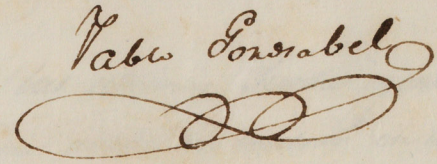 Pablo Gondsabel